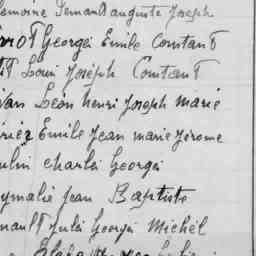 Lemoine Fernand auguste Joseph
rrot Georges Emile Constant
tit Louis Joseph Constant
Van Léon henri Joseph marie
rier Emile Jean marie Jérome
ulin charles Georges
ymalie Jean Baptiste
nault Jules Georges Michel